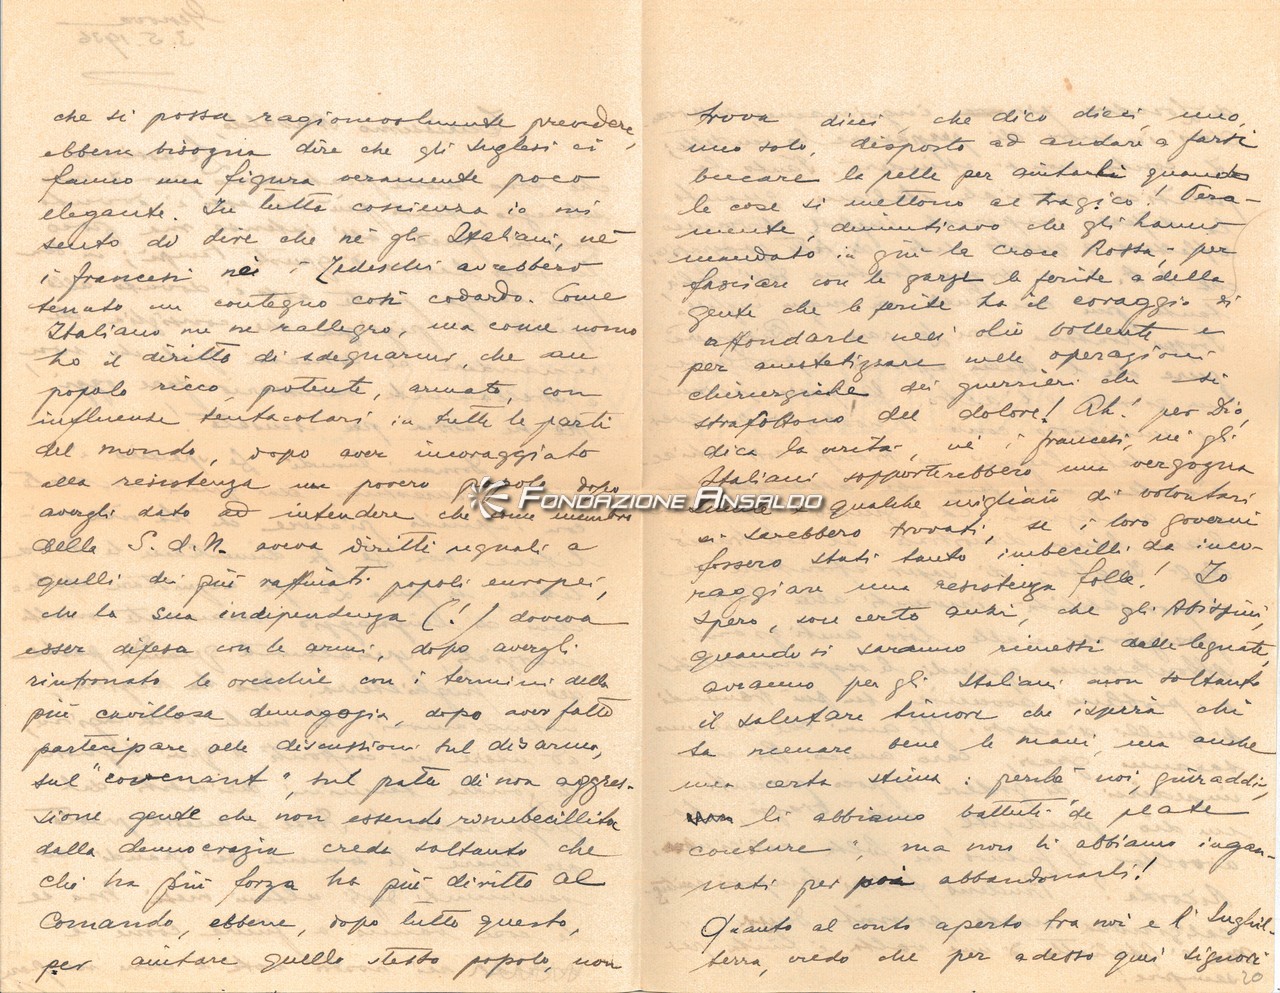 Genova
3.5.1936
che si possa ragionevolmente prevedere,
ebbene bisogna dire che gli Inglesi ci
fanno una figura veramente poco
elegante. In tutta coscienza io mi
sento di dire che nè gli Italiani, nè
i francesi nei i Tedeschi avrebbero
tenuto un contegno così codardo. Come
Italiano me ne rallegro, ma come uomo
ho il diritto di sdegnarmi, che un
popolo ricco, potente, armato, con
influenze tentacolari in tutte le parti
del mondo, dopo aver incoraggiato
alla resistenza un povero popolo, dopo
avergli dato ad intendere che come membro
della S.d.N. aveva diritti uguali a
quelli dei più raffinati popoli europei,
che la sua indipendenza (!) doveva
esser difesa con le armi, dopo avergli
rintronato le orecchie con i termini della
più cavillosa demagogia, dopo aver fatto
partecipare alle discussioni sul disarmo,
sul "covenant", sul patto di non aggres-
sione gente che non essendo rimbecillita
dalla democrazia crede soltanto che
chi ha più forza ha più diritto al
comando, ebbene, dopo tutto questo,
per aiutare quello stesso popolo, non
trova dieci, che dico dieci, uno,
uno solo, disposto ad andare a farsi
bucare la pelle per aiutarli quando
le cose si mettono al tragico! Vera-
mente, dimenticavo che gli hanno
mandato in giù la croce Rossa, per
fasciare con le garze le ferite a della
gente che le ferite ha il coraggio di
affondarle nell'olio bollente e
per anestetizzare nelle operazioni
chirurgiche dei guerrieri che si
strafottono del dolore! Ah! per Dio,
dica la verità, nè i francesi, nè gli
Italiani sopporterebbero una vergogna
simile e qualche migliaio di volontari
si sarebbero trovati, se i loro governi
fossero stati tanto imbecilli da inco-
raggiare una resistenza folle. Io
spero, son certo anzi, che gli Abissini,
quando si saranno rimessi dalle legnate,
avranno per gli Italiani non soltanto
il salutare timore che ispira chi
sa menare bene le mani, ma anche
una certa stima: perchè noi, giuraddio,
li abbiamo battuti "a plate
couture", ma non li abbiamo ingan-
nati per poi abbandonarli!
Quanto al conto aperto tra noi e l'Inghil-
terra, credo che per adesso quei signori
20
FONDAZIONE ANSALDO